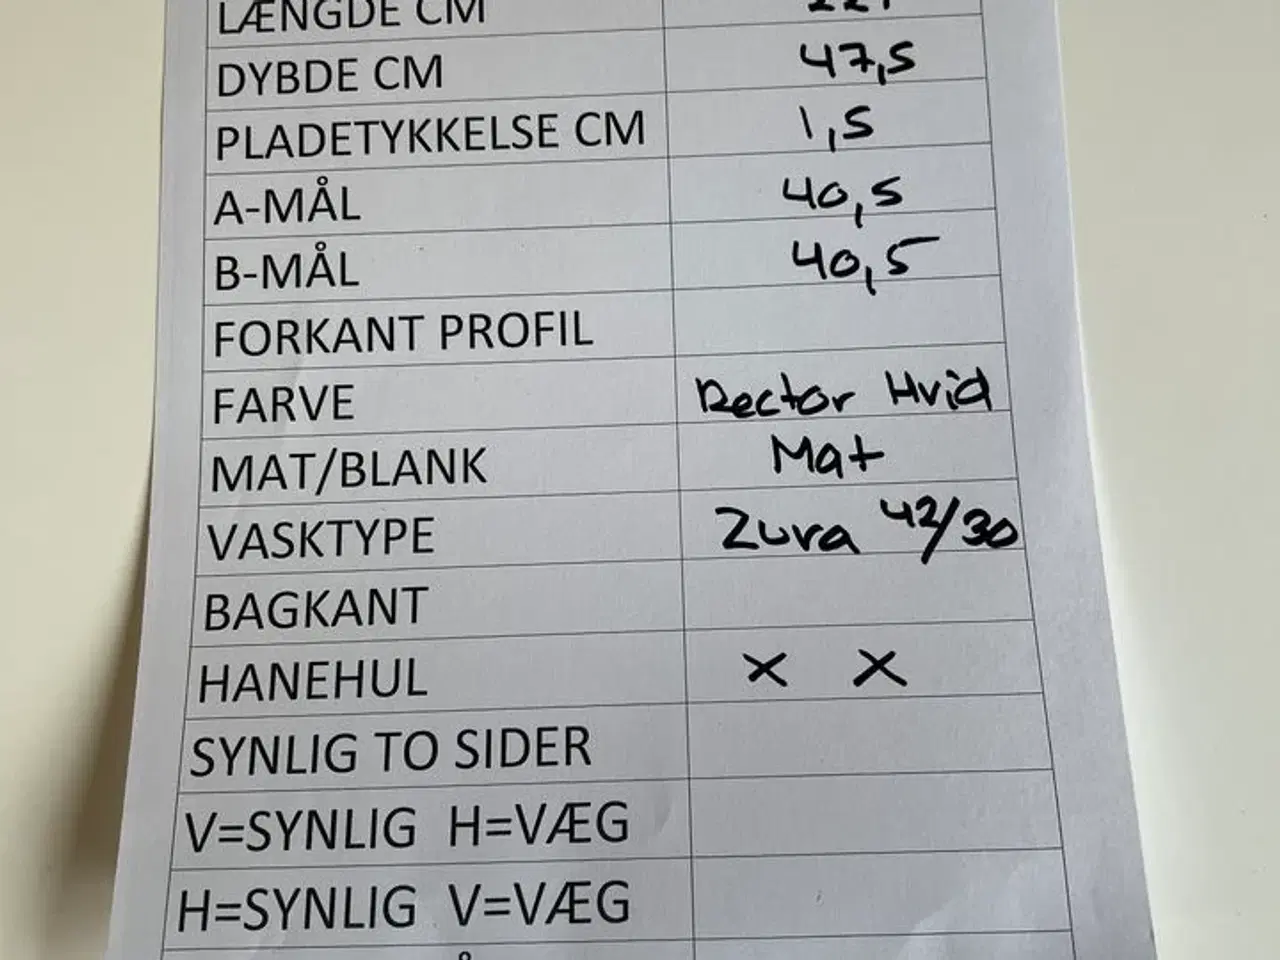 LÆNGDE CM
DYBDE CM 47,5
PLADETYKKELSE CM 1,5
A-MÅL 40,5
B-MÅL 40,5
FORKANT PROFIL
FARVE Rector Hvid
MAT/BLANK Mat
VASKTYPE Zura 42/30
BAGKANT
HANEHUL X X
SYNLIG TO SIDER
V=SYNLIG H=VÆG
H=SYNLIG V=VÆG